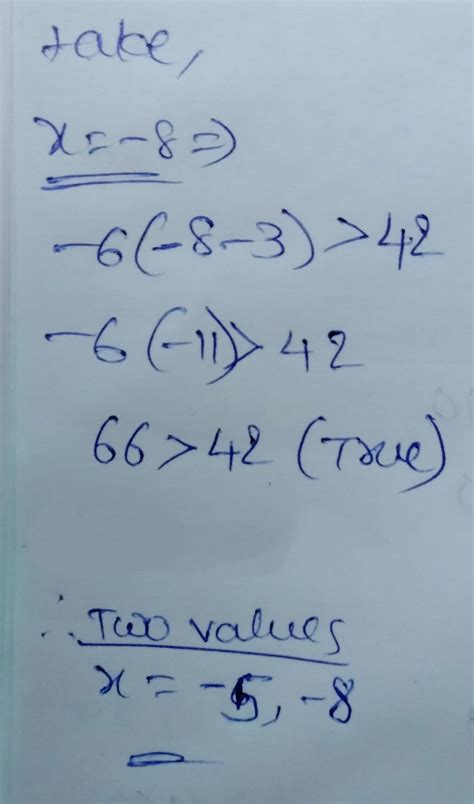 take,
x = -8 =>
-6(-8-3) > 42
-6(-11) > 42
66 > 42 (True)
∴ Two values
x = -5, -8